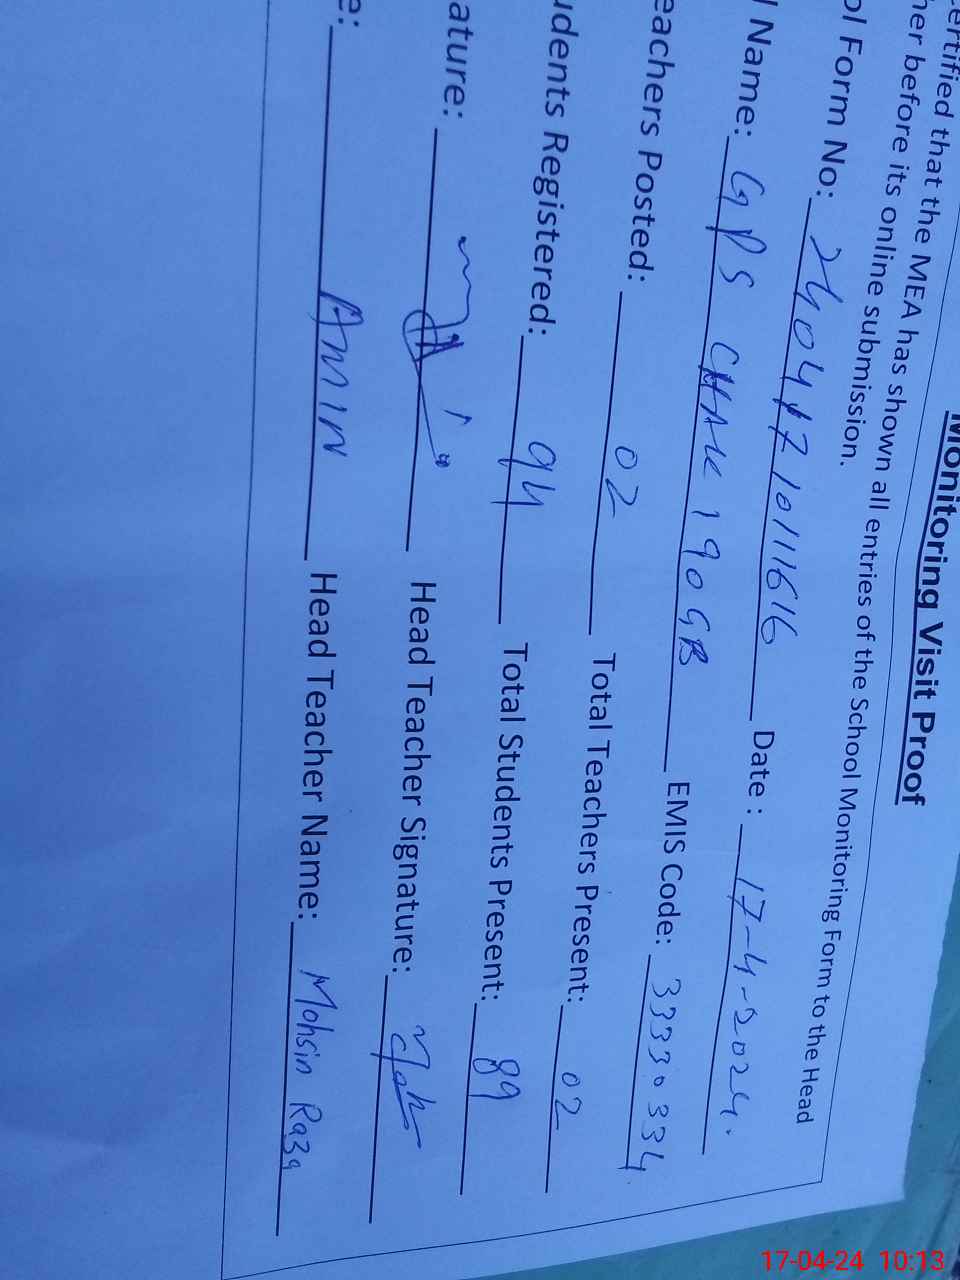 Monitoring Visit Proof
ertified that the MEA has shown all entries of the School Monitoring Form to the Head
her before its online submission.
ol Form No: 2404171011616 Date : 17-4-2024.
l Name: GPS CHAK 190GB EMIS Code: 33330334
eachers Posted: 02 Total Teachers Present: 02
udents Registered: 94 Total Students Present: 89
ature: Head Teacher Signature:
e: AMIN Head Teacher Name: Mohsin Raza
17-04-24 10:13